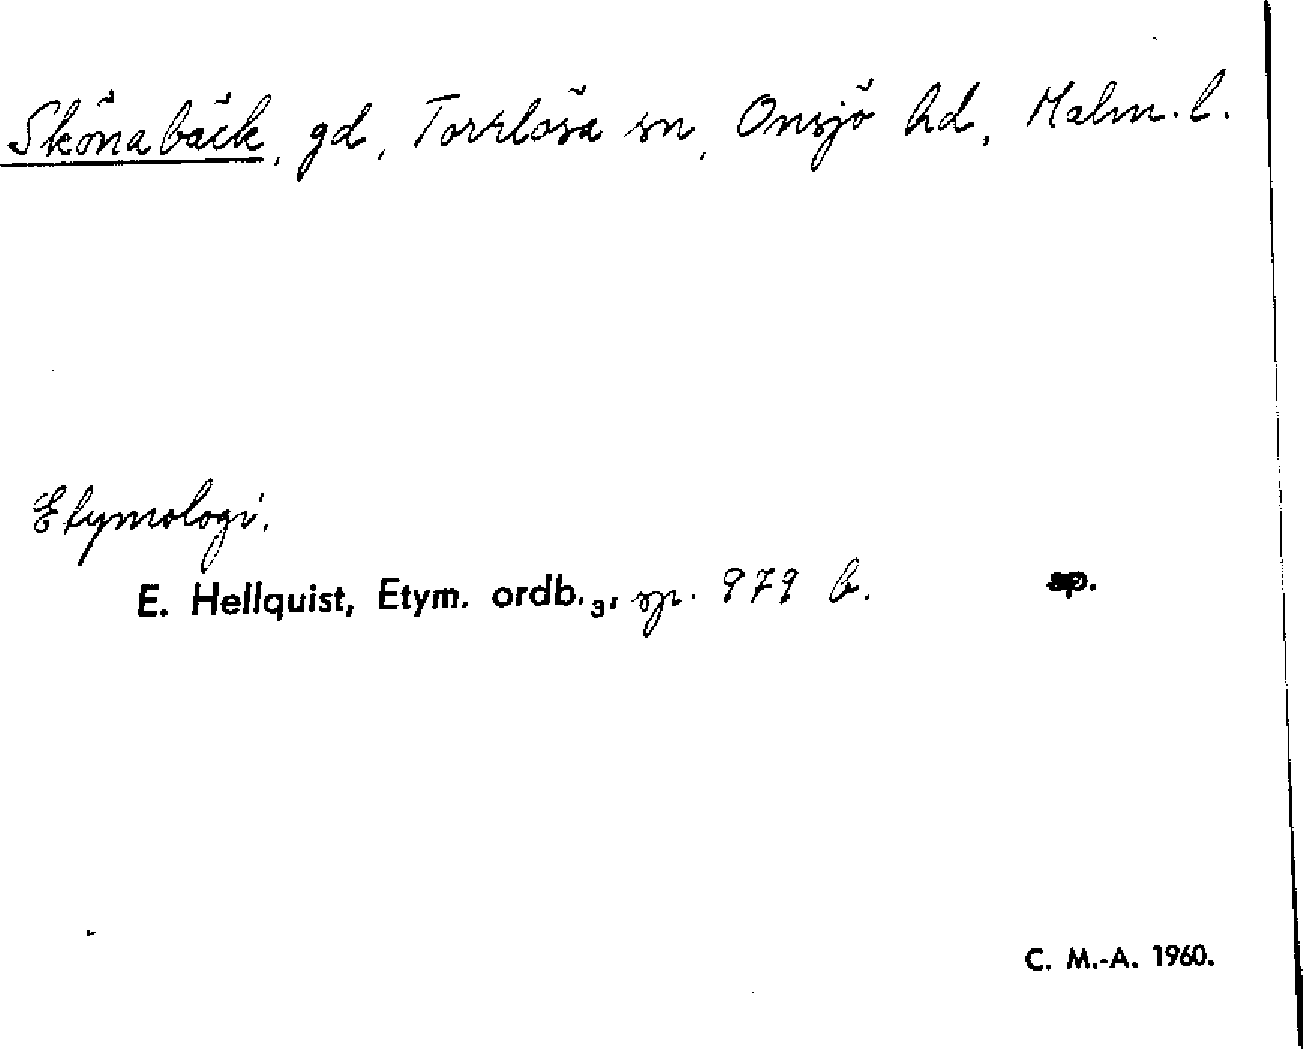 Skönabäck, gd, Torrlösa sn, Onsjö hd, Malm. l.
Etymologi.
E. Hellquist, Etym. ordb.₃, sp. 979 b. sp.
C. M.-A. 1960.